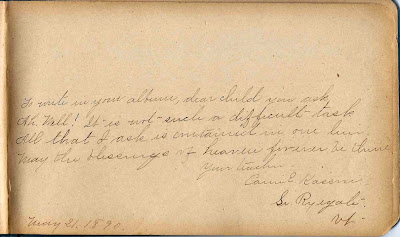 To write in your album, dear child you ask,
Ah. Well! It is not such a difficult task
All that I ask is contained in one line,
May the blessings of heaven forever be thine
Your teacher
Carrie
So. Ryegate
Vt.
May 21. 189